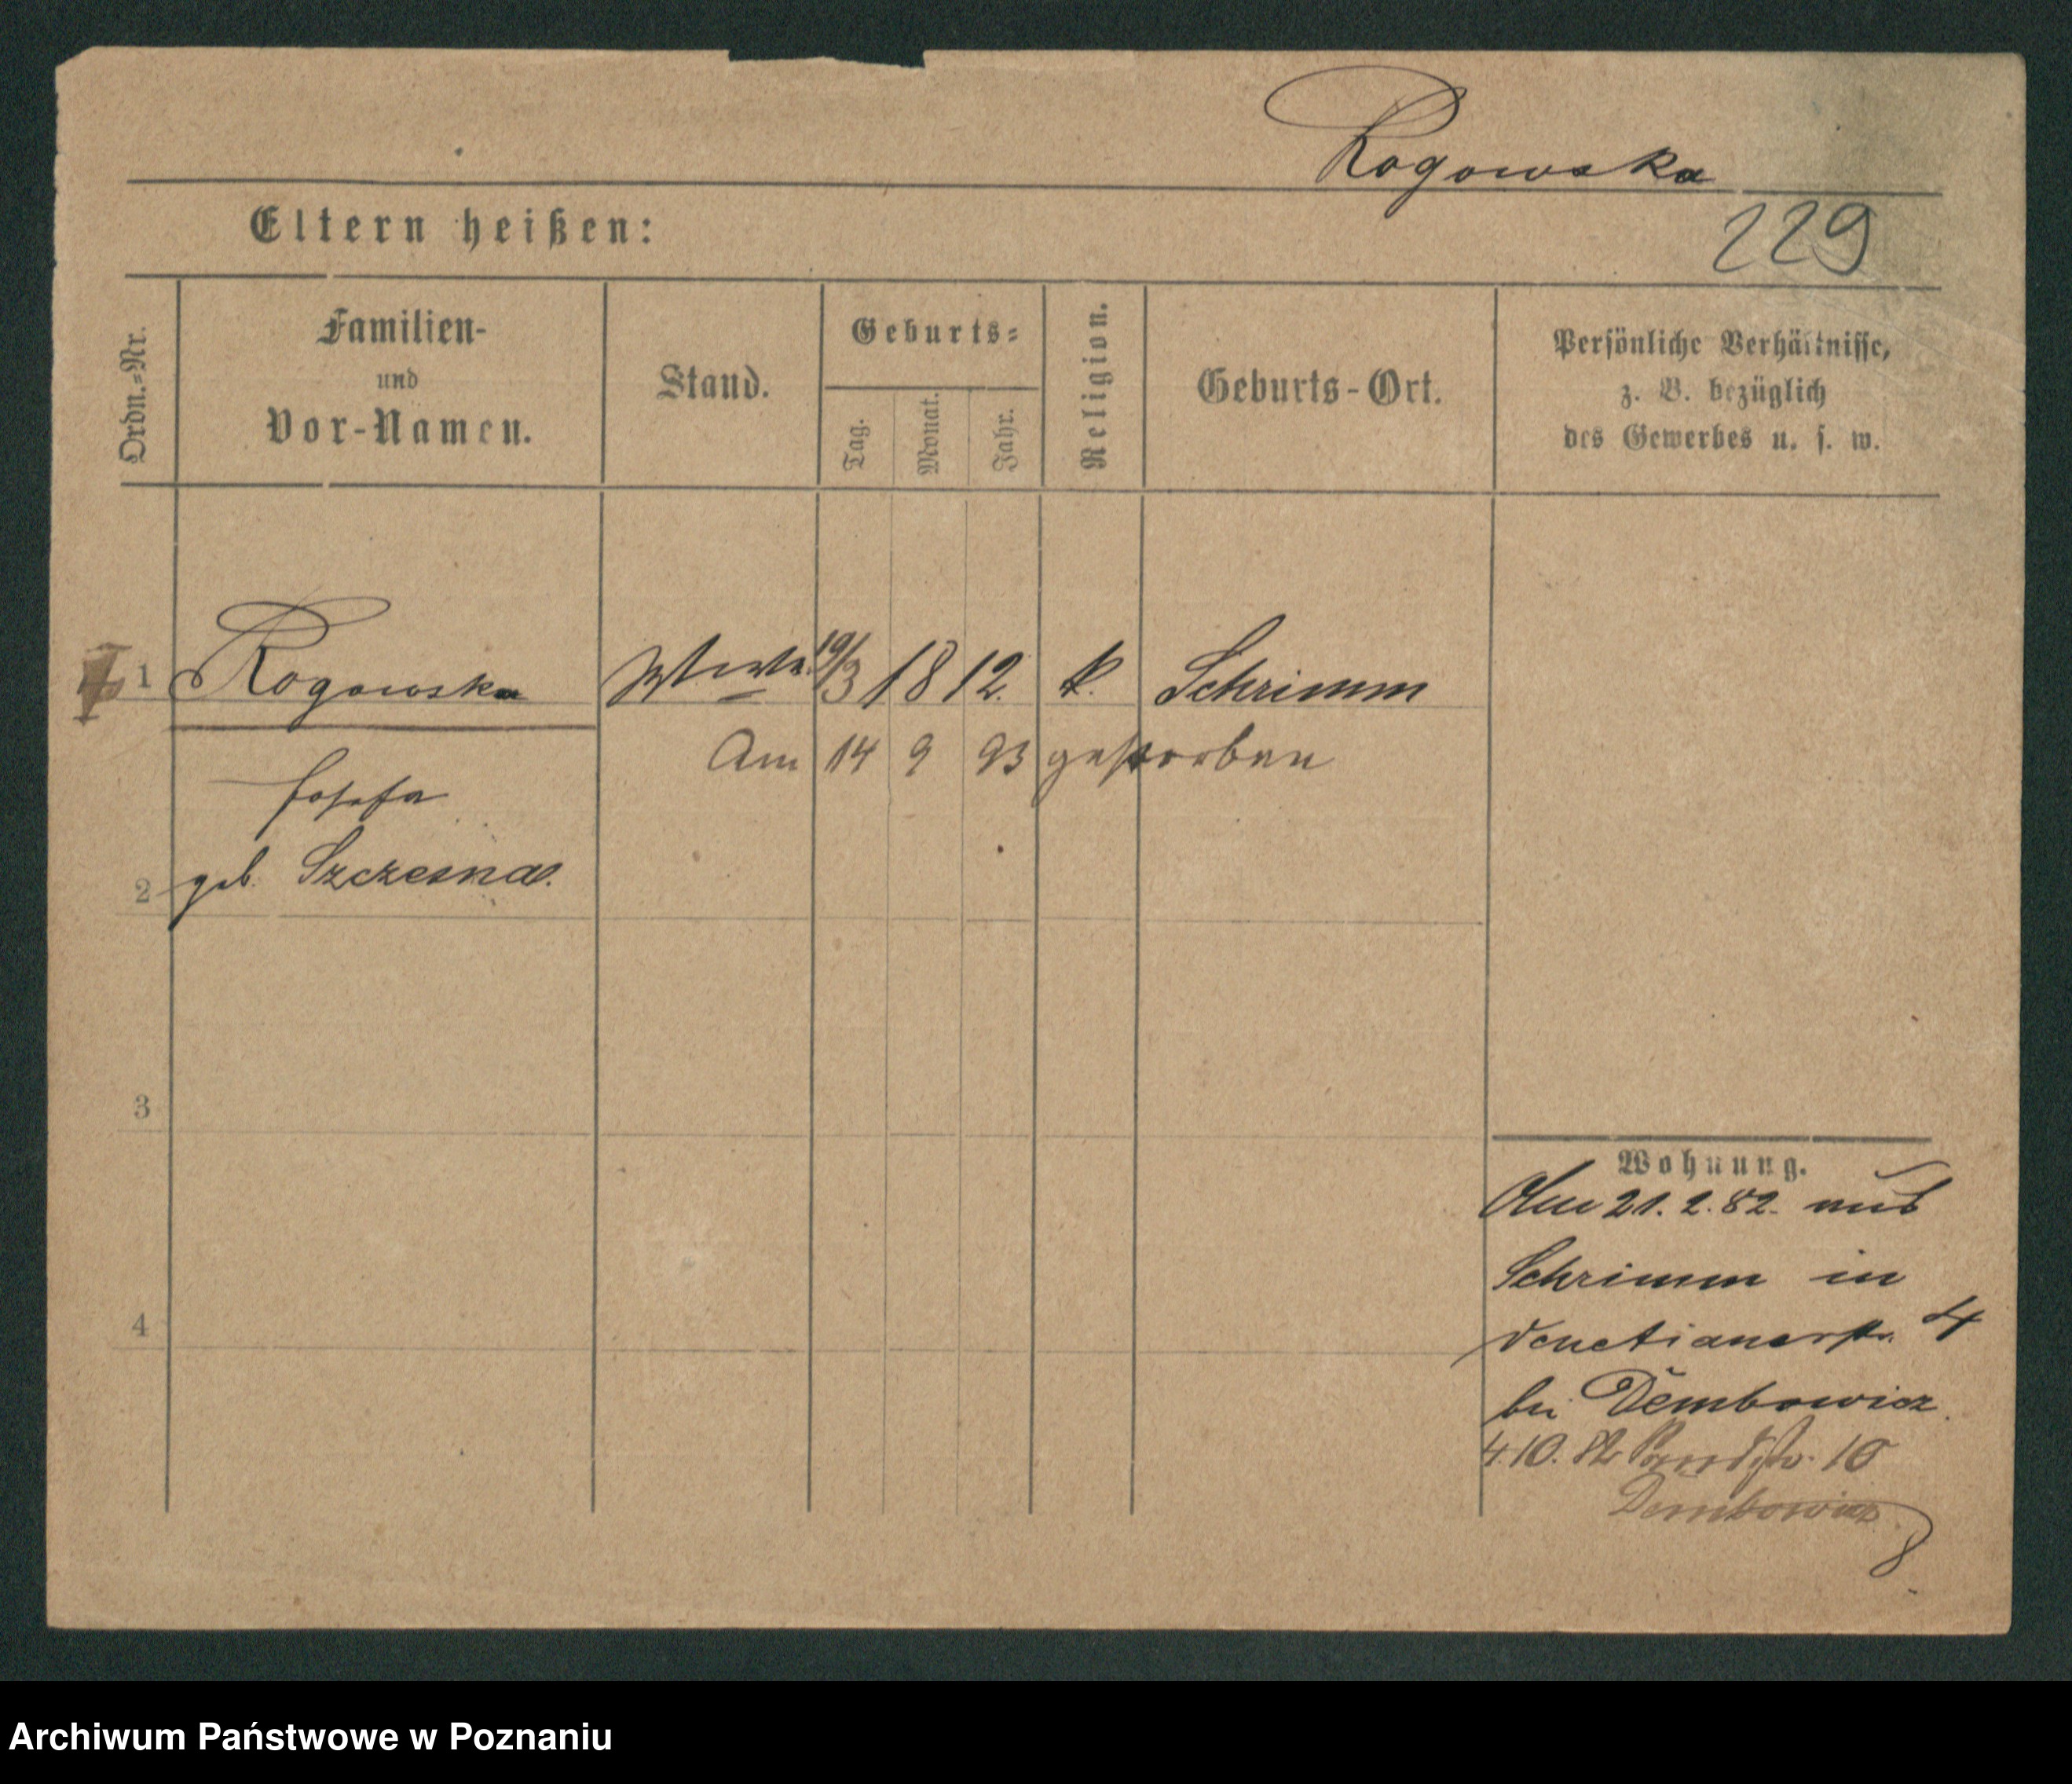 Rogowska
229
Eltern heißen:
Ordn.-Nr.
Familien-
und
Vor-Namen.
Stand.
Geburts-
Tag.
Monat.
Jahr.
Religion.
Geburts-Ort.
Persönliche Verhältnisse,
z. B. bezüglich
des Gewerbes u. s. w.
1 Rogowska Wwe 19/3 1812. k. Schrimm
Am 14 9 93 gestorben
Josefa
2 geb. Szczesna.
3
4
Wohnung.
Am 21.2.82. aus
Schrimm in
Venetianerstr. 4
bei Dembowicz.
4.10. 82 10
Dembowicz
Archiwum Państwowe w Poznaniu